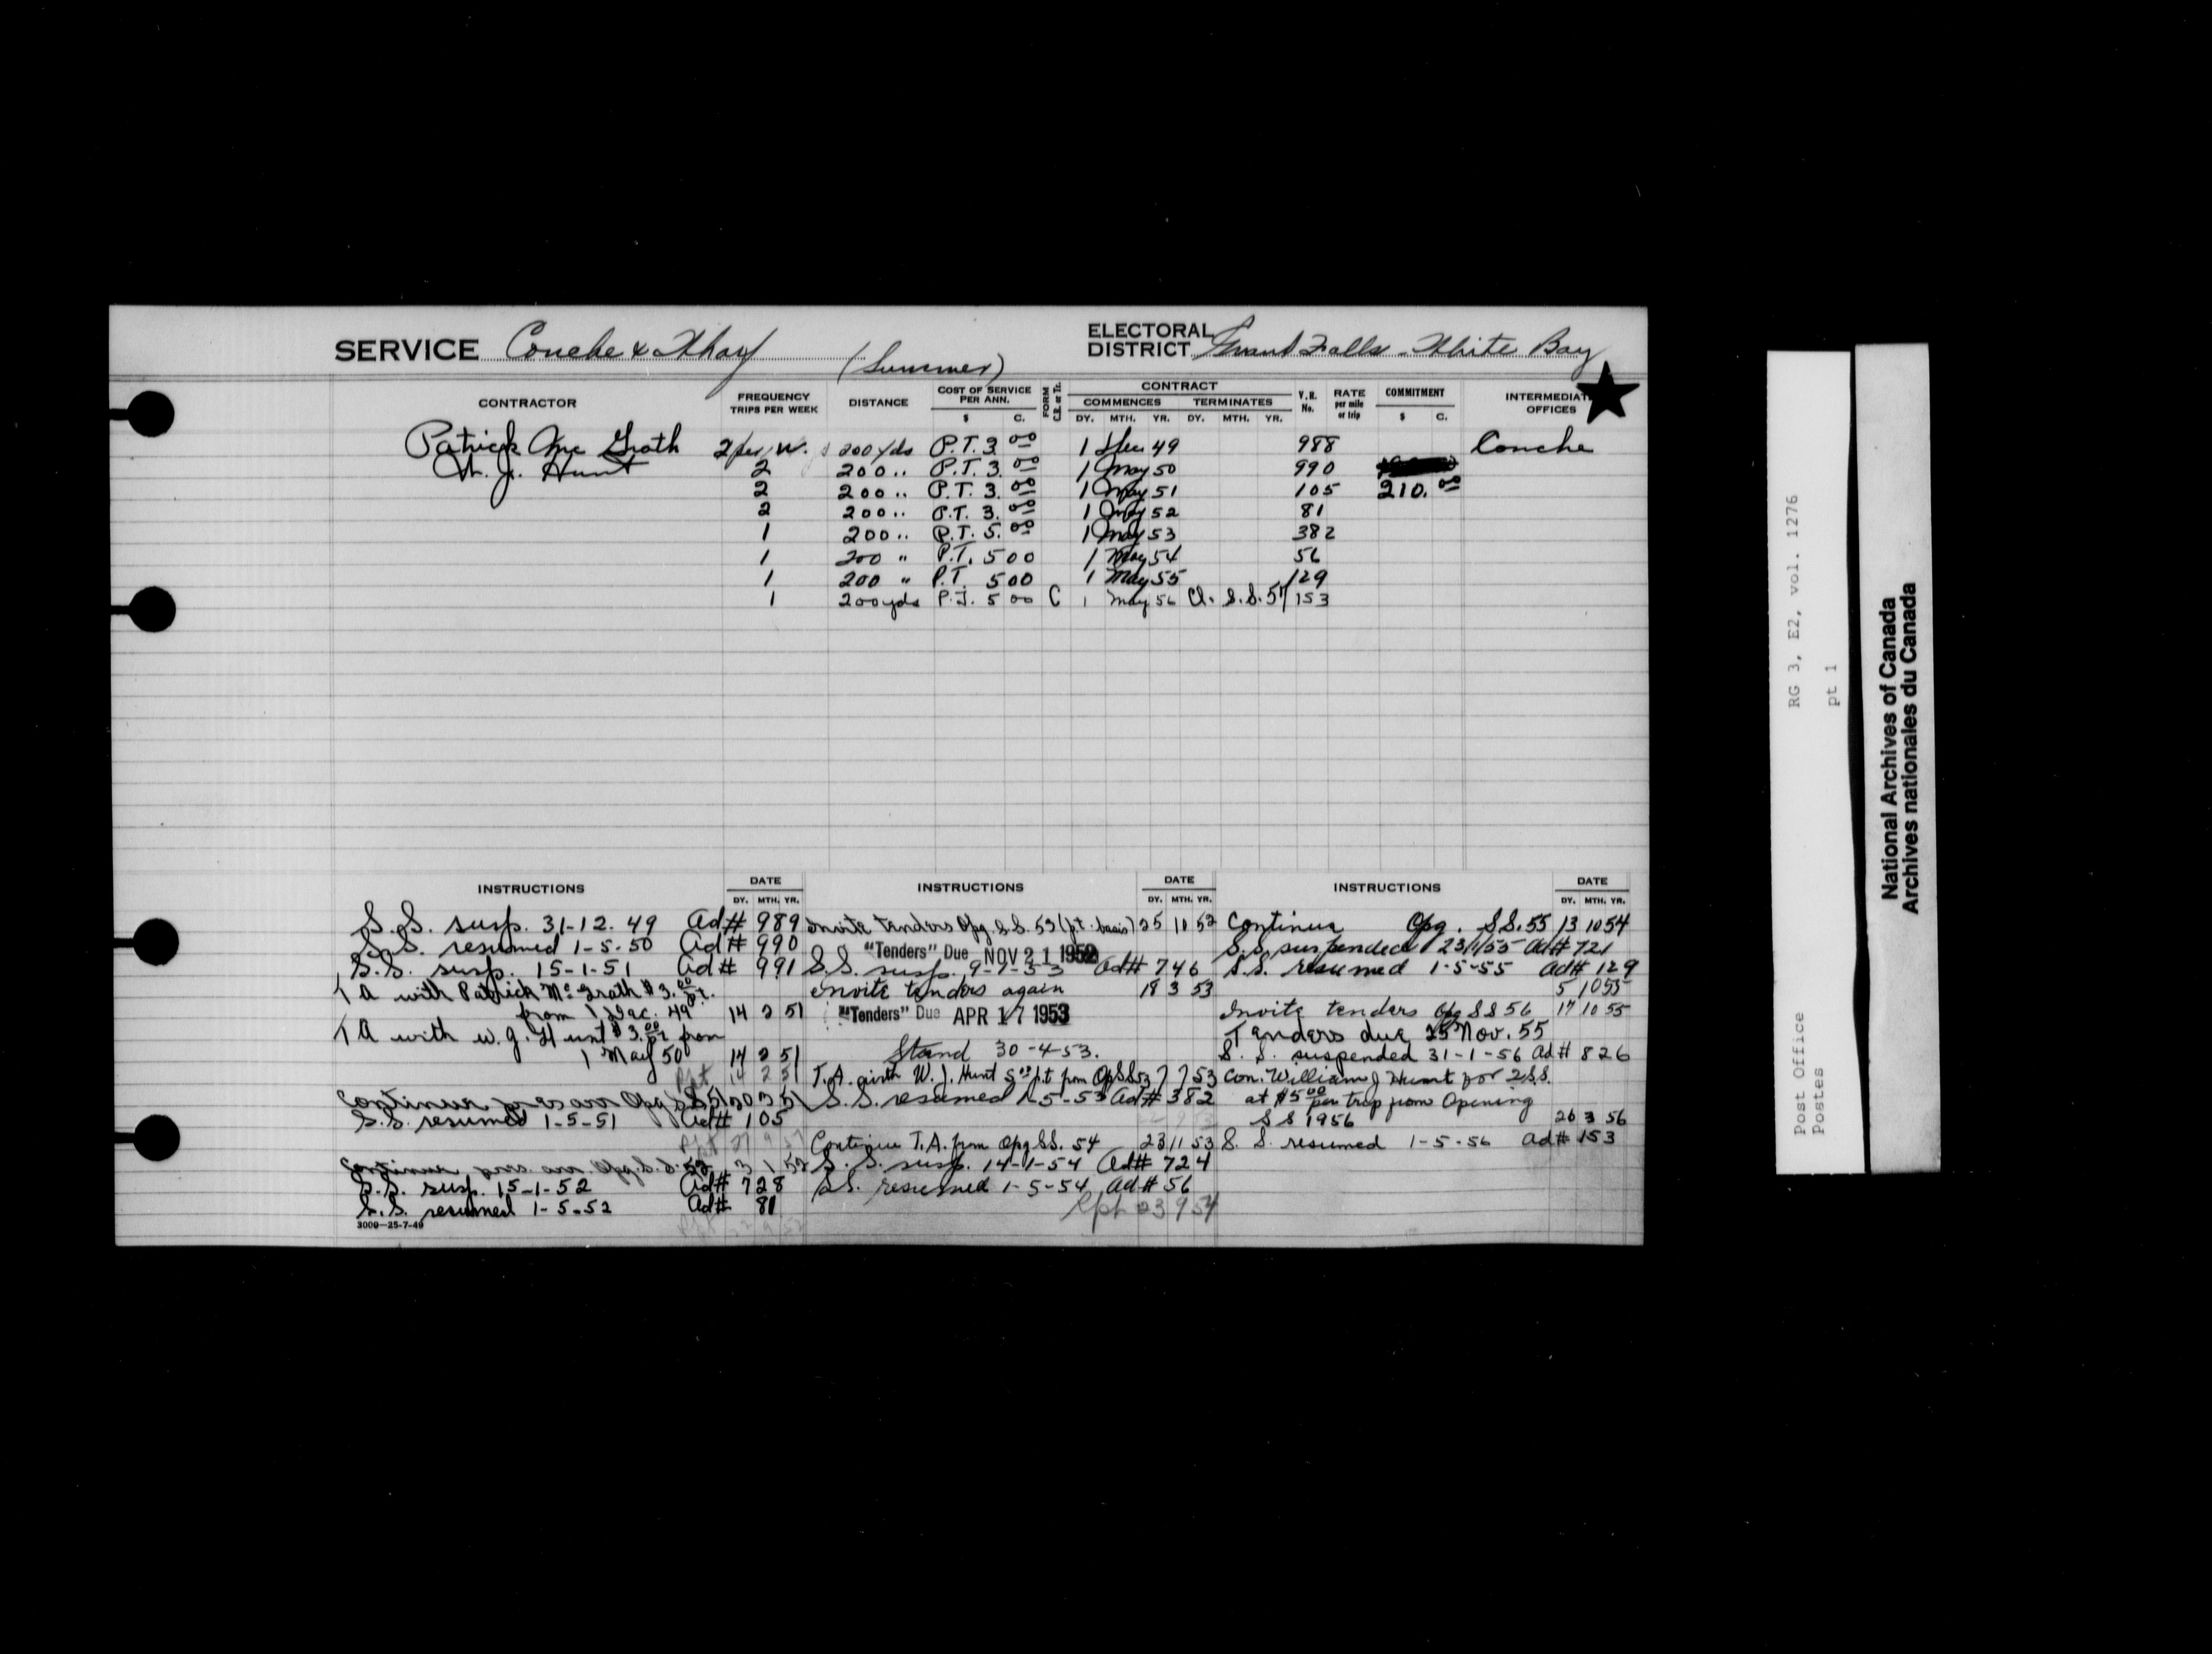 SERVICE Conche & Wharf (Summer)
ELECTORAL DISTRICT Grand Falls - White Bay
CONTRACTOR
FREQUENCY TRIPS PER WEEK
DISTANCE
COST OF SERVICE PER ANN. $ C.
FORM C.R. or Tr.
CONTRACT
COMMENCES DY. MTH. YR.
TERMINATES DY. MTH. YR.
V.R. No.
RATE per mile or trip
COMMITMENT $ C.
INTERMEDIATE OFFICES
Patrick Mc Grath 2 per W. 200 yds P.T. 3 00 1 Dec 49 988 Conche
W. J. Hunt 2 200 " P.T. 3 00 1 May 50 990
2 200 " P.T. 3. 00 1 May 51 105 210. 00
2 200 " P.T. 3. 00 1 May 52 81
1 200 " P.T. 5. 00 1 May 53 382
1 200 " P.T. 5 00 1 May 54 56
1 200 " P.T 5 00 1 May 55 129
1 200 yds P.T. 5 00 C 1 May 56 Cl. S.S. 57 153
INSTRUCTIONS DATE DY. MTH. YR.
S.S. susp. 31-12-49 Ad# 989
S.S. resumed 1-5-50 Ad# 990
S.S. susp. 15-1-51 Ad# 991
T A with Patrick Mc Grath $3.00 p.t.
from 1 Dec. 49 14 2 51
T A with W. J. Hunt $3.00 p.t. from
1 May 50 14 2 51
Rpt 14 2 51
Continue pres arr Opg S.S. 51 20 3 51
S.S. resumed 1-5-51 Ad# 105
Rpt 27 9 51
Continue pres. arr. Opg. S.S. 52 3 1 52
S.S. susp. 15-1-52 Ad# 728
S.S. resumed 1-5-52 Ad# 81
3000-25-7-49
INSTRUCTIONS DATE DY. MTH. YR.
Invite tenders Opg. S.S. 53 (p.t. basis) 25 10 52
"Tenders" Due NOV 21 1952
S.S. susp. 9-1-53 Ad# 746
Invite tenders again 18 3 53
"Tenders" Due APR 17 1953
Stand 30-4-53.
T.A. with W. J. Hunt 5 00 p.t from Op SS 53 7 7 53
S.S. resumed 1-5-53 Ad# 382
Continue T.A. from Opg SS. 54 23 11 53
S.S. susp. 14-1-54 Ad# 724
S.S. resumed 1-5-54 Ad# 56
Rpt 23 9 54
INSTRUCTIONS DATE DY. MTH. YR.
Continue Opg. S.S. 55 13 10 54
S.S. suspended 23/1/55 Ad# 721
S.S. resumed 1-5-55 Ad# 129
5 10 55
Invite tenders Opg SS 56 17 10 55
Tenders due 25 Nov. 55
S. S. suspended 31-1-56 Ad# 826
Con. William J Hunt for 2 S.S.
at $5 00 per trip from Opening
S S 1956 26 3 56
S. S. resumed 1-5-56 Ad# 153
Post Office
Postes
RG 3, E2, vol. 1276
pt 1
National Archives of Canada
Archives nationales du Canada